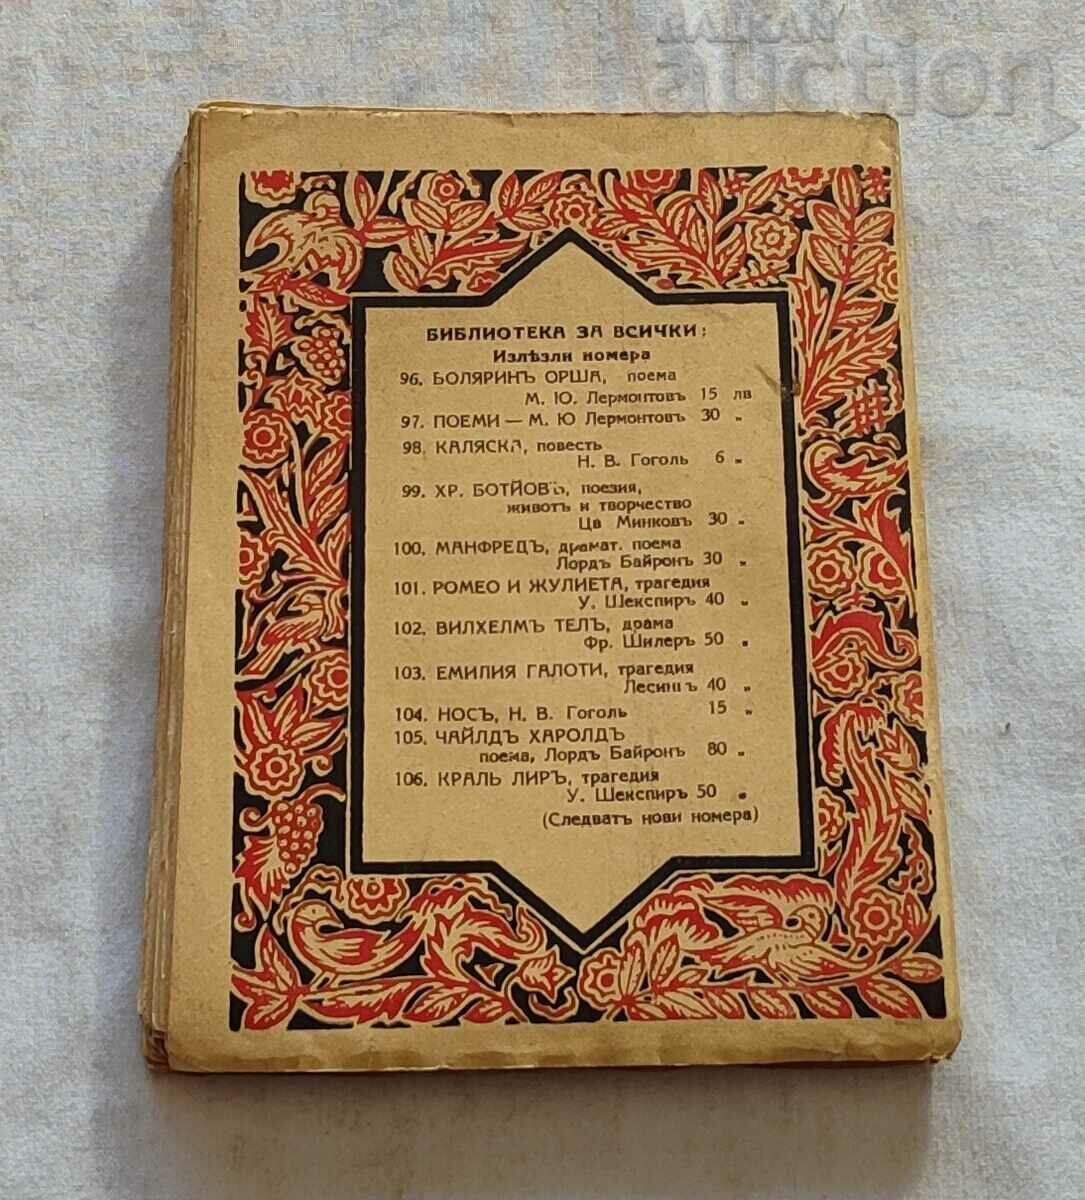 БАЛКАН
auction
БИБЛИОТЕКА ЗА ВСИЧКИ:
Излѣзли номера
96. БОЛЯРИНЪ ОРША, поема
М. Ю. Лермонтовъ 15 лв
97. ПОЕМИ — М. Ю Лермонтовъ 30 „
98. КАЛЯСКА, повесть
Н. В. Гоголь 6 „
99. ХР. БОТЙОВЪ, поезия,
животъ и творчество
Цв Минковъ 30 „
100. МАНФРЕДЪ, драмат. поема
Лордъ Байронъ 30 „
101. РОМЕО И ЖУЛИЕТА, трагедия
У. Шекспиръ 40 „
102. ВИЛХЕЛМЪ ТЕЛЪ, драма
Фр. Шилеръ 50 „
103. ЕМИЛИЯ ГАЛОТИ, трагедия
40 „
104. НОСЪ, Н. В. Гоголь 15 „
105. ЧАЙЛДЪ ХАРОЛДЪ
поема, Лордъ Байронъ 80 „
106. КРАЛЬ ЛИРЪ, трагедия
У. Шекспиръ 50 „
(Следватъ нови номера)